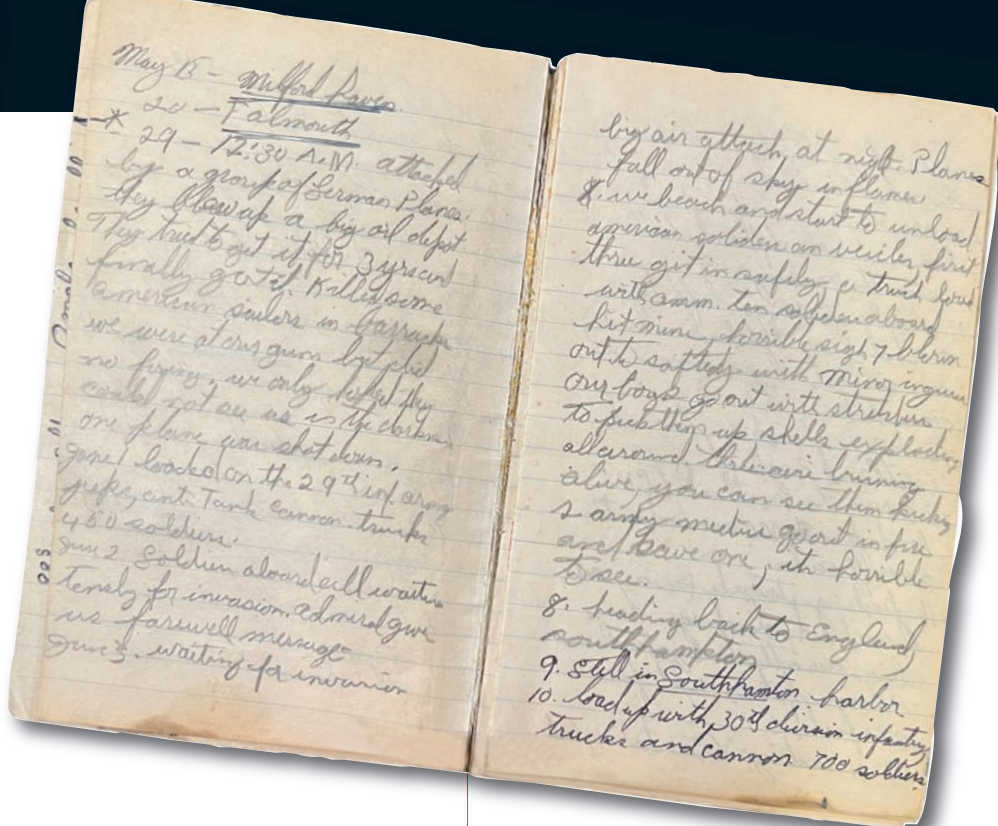 May 15 - Milford Haven
20 - Falmouth
* 29 - 12:30 A.M. attacked
by a group of German Planes.
they blew up a big oil depot
They tried to get it for 3 yrs and
finally got it. Killed some
american sailors in barracks
we were at our guns but did
no firing, we only hoped they
could not see us in the darkn
one plane was shot down.
June 1 loaded on the 29th inf army
jeeps, anti Tank cannon trucks
450 soldiers.
June 2 Soldiers aboard all waitin
tensly for invasion. admiral give
us farewell message
June 3. waiting for invasion
big air attack, at night. Planes
fall out of sky in flames.
8. we beach and start to unload
american soldiers on veicles, first
three git in safely, a truck load
with amm. ten soldiers aboard
hit mine, horrible sigh 7 blown
out to saftedy with minor
our boys go out with
to pick them up shells exploding
all around. three are burning
alive, you can see them kicking
army go out in fire
and save one, its horrible
to see.
8. heading back to England,
southhampton
9. still in Southhamton harbor
10. load up with 30th division infantry
trucks and cannon 700 soldiers